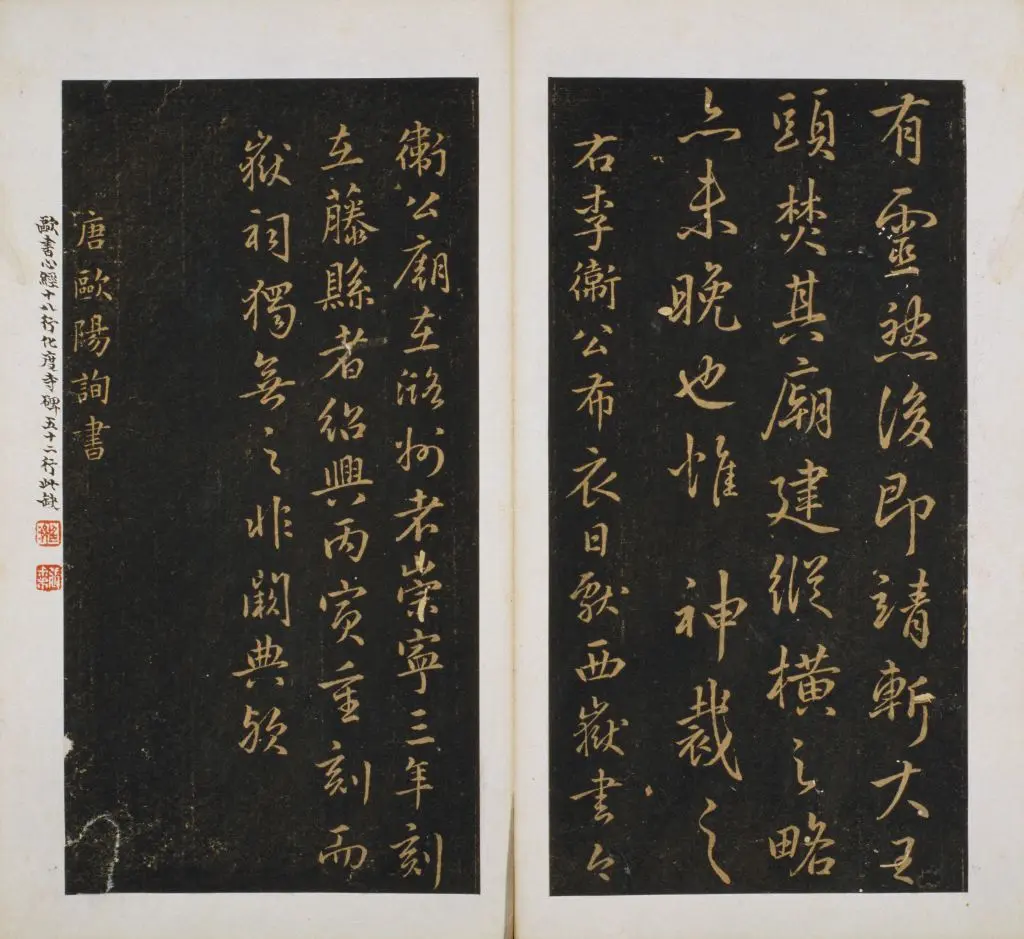 有靈然後即靖斬大王
頭焚其廟建縱橫之略
亦未晚也惟 神裁之
右李衛公布衣日獻西嶽書今
衛公廟在潞州者崇寧三年刻
在藤縣者紹興丙寅重刻而
嶽祠獨無之非闕典歟
唐歐陽詢書
歐書心經十八行化度寺碑五十二行此缺